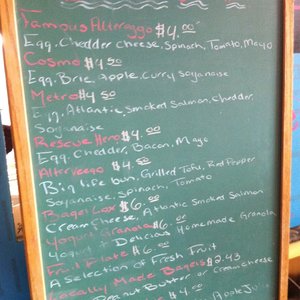 Famous Alterago $4.00
Egg, Chedder cheese, Spinach, Tomato, Mayo
Cosmo $4.50
Egg, Brie, Apple, Curry Soyanaise
Metro $4.50
Egg, Atlantic Smoked Salmon, Chedder
Soyanaise
Rescue Hero $4.50
Egg, Chedder, Bacon, Mayo
Alterveego $4.50
Big life bun, Grilled Tofu, Red Pepper
Soyanaise, Spinach, Tomato
Bagel Lox $6.00
Cream Cheese, Atlantic Smoked Salmon
Yogurt Granola $6.00
Yogurt + Delicious Homemade Granola
Fruit Plate $6.00
A Selection of Fresh Fruit
Locally Made Bagels $2.43
Peanut Butter, or Cream cheese
$4.00